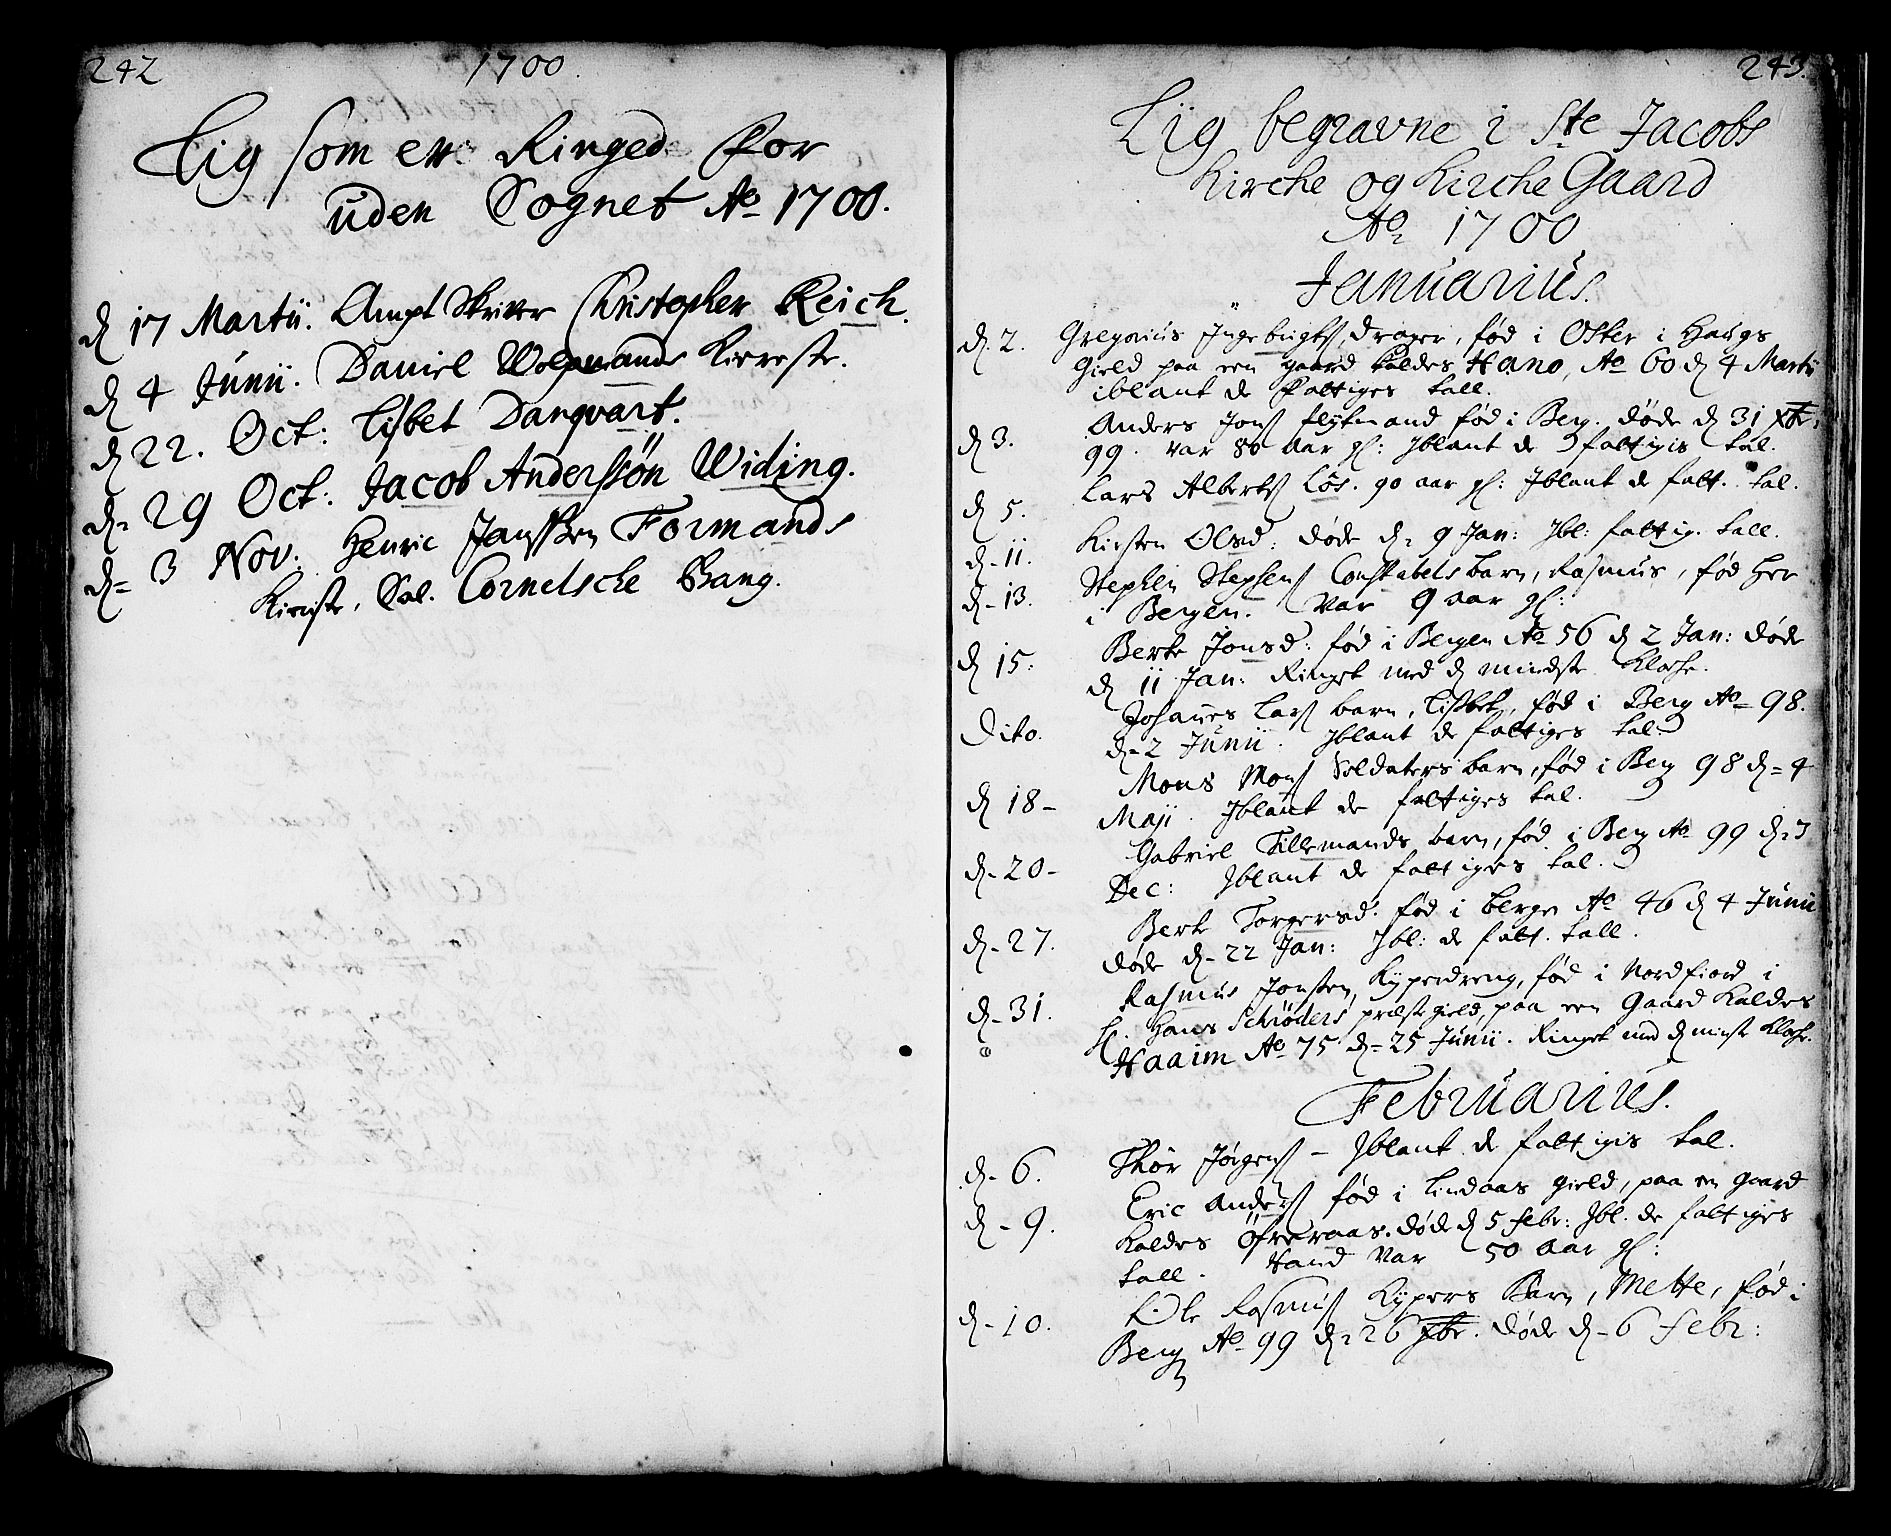 242 1700.
Lig som er Ringed for
uden Sognet Ao 1700.
d 17 Martii. Ampt Skriver Christopher Reich.
d 4 Junii. Daniel Wolpmands Kiereste.
d 22. Oct: Lisbet Danqvart.
d= 29 Oct: Jacob Anderssøn Widing.
d= 3 Nov: Henric Janssen Formands
Kierste, Sal. Cornelsche Bang.
243.
Lig begravne i Ste Jacobs
Kirche og Kirche Gaard
Ao 1700
Januarius.
d. 2. Gregorius Ingebrigts, drager, fød i Oster i Haugs
Gield paa een gaard kaldes Hano, Ao 60 d 4 Martii
iblant de fattiges tall.
d 3. Anders Jons flytmand fød i Berg. døde d 31 xbr:
99. var 80 aar gl: Iblant de fattigis tal.
d 5. Lars Alberts Løs. 90 aar gl: Iblant de fatt. tal.
d-11. Kirsten Olsd: døde d= 9 Jan: Ibl: fattig. tall.
d-13. Stephen Stephens Constabels barn, Rasmus, fød her
i Bergen. Var 9 aar gl:
d 15. Berte Jonsd: fød i Bergen Ao 56 d 2 Jan: døde
d 11 Jan: Ringet med d mindste Klocke.
Dito. Johannes Lars barn, Lisbet, fød i Berg Ao 98.
d-2 Junii. Iblant de fattiges tal.
d 18- Mons Mons Soldaters barn, fød i Berg 98 d=4
Maji. Iblant de fattiges tal.
d-20- Gabriel Tillemands barn, fød i Berg Ao 99 d=3
Dec: Iblant de fattiges tal.
d-27. Berte Torgersd: fød i Berge Ao 46 d 4 Junii
døde d-22 Jan: Ibl: de fatt. tall.
d-31. Rasmus Jonsen, Kyperdreng, fød i Nordfiord i
H. Hans Schrøders præstegield, paa een Gaard Kaldes
Haaim Ao 75 d= 25 Junii. Ringet med d minste Klocke.
Februarius.
d- 6. Thor Jørgens - Iblant de fattigis tal.
d - 9. Eric Anders fød i Lindaas gield, paa en gaard
Kaldes Öfreraas. døde d 5 febr: Ibl. de fattiges
tall. Hand var 50 aar gl:
d-10. Ole Rasmus Kypers Barn, Mette, fød i
Berg Ao 99 d=26 xbr. døde d-6 febr: